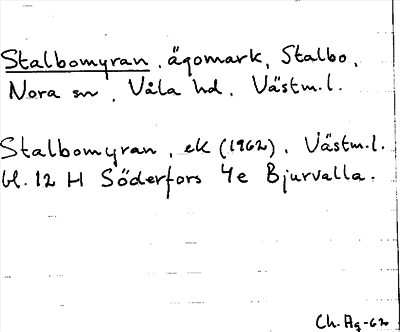 Stalbomyran, ägomark, Stalbo,
Nora sn, Våla hd, Västm.l.
Stalbomyran, ek (1962), Västm.l.
bl. 12 H Söderfors 4e Bjurvalla.
Ch. Ag-62